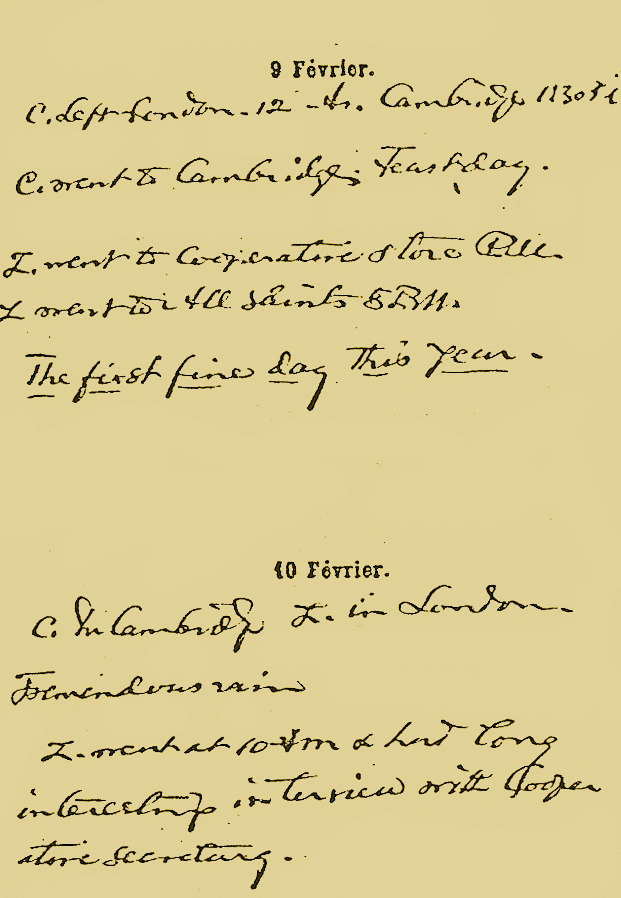 9 Février.
C. Left London. 12 Cambridge 1130
C. went to Cambridge; Feast day.
I. went to Cooperative store
I went to All Saints
The first fine day this year.
10 Février.
C. In Cambridge I. in London.
Tremendous rain
I. went at 10 & had long
interesting interview with Cooper
ative secretary.